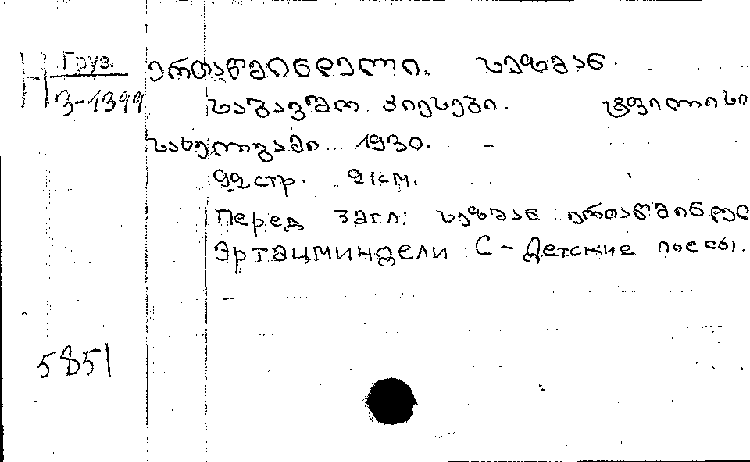 Н Груз. ერთაწმინდელი. სეზმან.
3-1399 საბავშო. პიესები. ტფილისი
სახელგამი. 1930.
99 стр. 21см.
Перед загл: სეზმან ერთაწმინდელ
Эртацминдели С - Детские пьесы.
5851